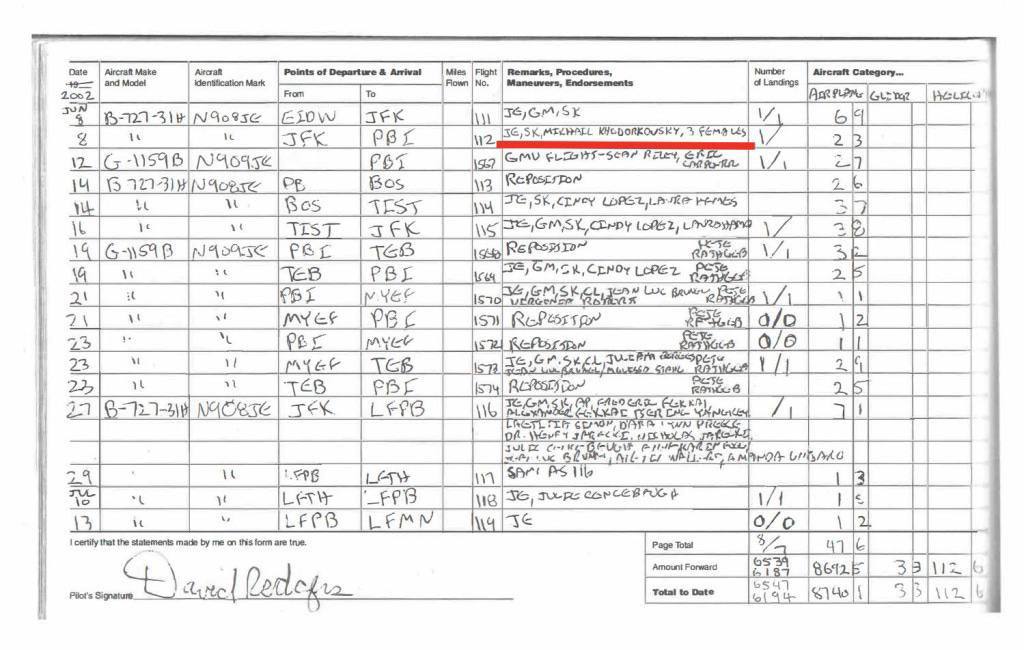 Date Aircraft Make and Model Aircraft Identification Mark Points of Departure & Arrival Miles Flown Flight No. Remarks, Procedures, Maneuvers, Endorsements Number of Landings Aircraft Category...
2002 From To AIRPLANE GLIDER
JUN 8 B-727-31H N908JE EIDW JFK 111 JE, GM, SK 1/1 6 9
8 " " JFK PBI 112 JE, SK, MICHAIL KHODORKOVSKY, 3 FEMALES 1/ 2 3
12 G-1159B N909JE PBI 1567 GMU FLIGHT-SEAN RILEY, ERIC 1/1 2 7
14 B 727-31H N908JE PB BOS 113 REPOSITION 2 6
14 " " BOS TIST 114 JE, SK, CINDY LOPEZ, 3 7
16 " " TIST JFK 115 JE, GM, SK, CINDY LOPEZ, 1/ 3 8
19 G-1159B N909JE PBI TEB REPOSITION PETE 1/1 3 2
19 " " TEB PBI 1569 JE, GM, SK, CINDY LOPEZ PETE 2 5
21 " " PBI MYEF 1570 JE, GM, SK, CL, JEAN LUC BRUNEL PETE 1/1 1 1
21 " " MYEF PBI 1571 REPOSITION PETE 0/0 1 2
23 " " PBI MYEF 1572 REPOSITION PETE 0/0 1 1
23 " " MYEF TEB 1573 JE, GM, SK, CL, 1/1 2 9
23 " " TEB PBI 1574 REPOSITION PETE 2 5
27 B-727-31H N908JE JFK LFPB 116 JE, GM, SK, AP, FREDERIC FEKKAI, /1 7 1
ALEXANDER FEKKAI
DR. HENRY JARECKI, NICHOLAS JARECKI,
29 " LFPB LGTH 117 SAME AS 116 1 3
JUL 10 " " LGTH LFPB 118 JE, 1/1 1
13 " " LFPB LFMN 119 JE 0/0 1 2
I certify that the statements made by me on this form are true. Page Total 8/7 47 6
Amount Forward 6539 6187 8692 5 3 3 112 6
Pilot's Signature David Rodgers Total to Date 6547 6194 8740 1 3 3 112 6